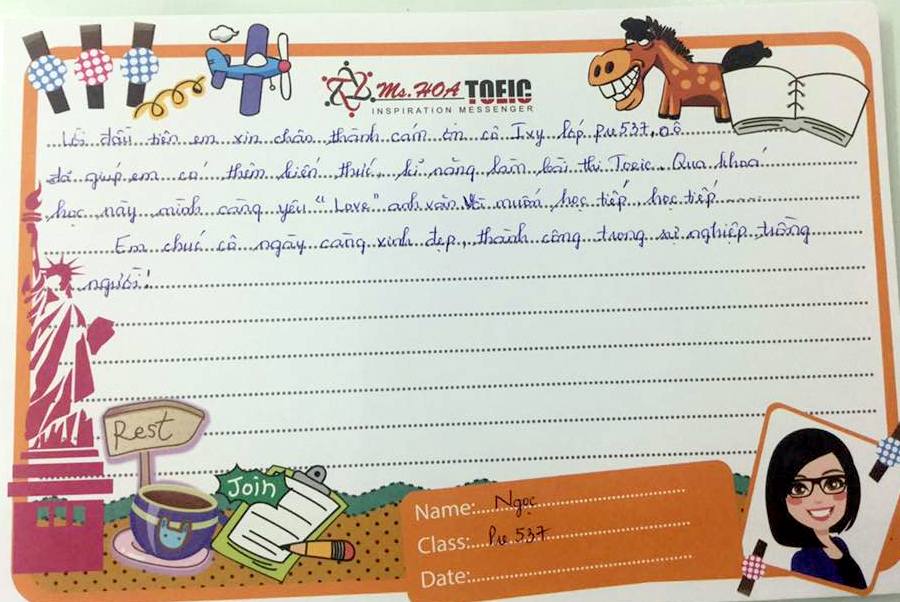 Ms.HOA TOEIC
INSPIRATION MESSENGER
Lời đầu tiên em xin chân thành cảm ơn cô Ixy lớp Pu537, cô
đã giúp em có thêm kiến thức, kĩ năng làm bài thi Toeic. Qua khoá
học này mình càng yêu "Love" anh văn. Và muốn học tiếp, học tiếp......
Em chúc cô ngày càng xinh đẹp, thành công trong sự nghiệp trồng
người!
Rest
Join
Name: Ngọc
Class: Pu 537
Date: